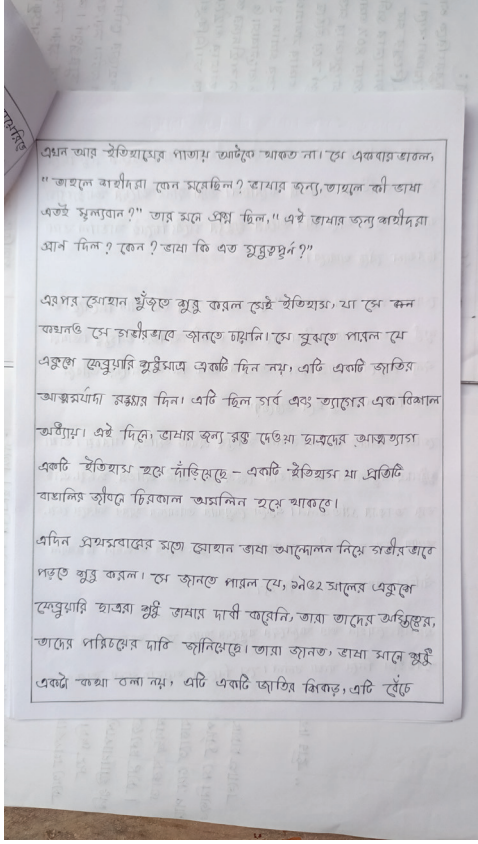 এখন আর ইতিহাসের পাতায় আটকে থাকত না। সে একবার ভাবল,
"তাহলে শহীদরা কেন মরেছিল? ভাষার জন্য, তাহলে কী ভাষা
এতই মূল্যবান?" তার মনে প্রশ্ন ছিল, "এই ভাষার জন্য শহীদরা
প্রাণ দিল? কেন? ভাষা কি এত গুরুত্বপূর্ন?"
এরপর সোহান খুঁজতে শুরু করল সেই ইতিহাস, যা সে
কখনও সে গভীরভাবে জানতে চায়নি। সে বুঝতে পারল যে
একুশে ফেব্রুয়ারি শুধুমাত্র একটি দিন নয়, এটি একটি জাতির
আত্মমর্যাদা রক্ষার দিন। এটি ছিল গর্ব এবং ত্যাগের এক বিশাল
অধ্যায়। এই দিনে, ভাষার জন্য রক্ত দেওয়া ছাত্রদের আত্মত্যাগ
একটি ইতিহাস হয়ে দাঁড়িয়েছে - একটি ইতিহাস যা প্রতিটি
বাঙালির জীবনে চিরকাল অমলিন হয়ে থাকবে।
এদিন প্রথমবারের মতো সোহান ভাষা আন্দোলন নিয়ে গভীর ভাবে
পড়তে শুরু করল। সে জানতে পারল যে, ১৯৫২ সালের একুশে
ফেব্রুয়ারি ছাত্ররা শুধু ভাষার দাবী করেনি, তারা তাদের অস্তিত্বের,
তাদের পরিচয়ের দাবি জানিয়েছে। তারা জানত, ভাষা মানে শুধু
একটা কথা বলা নয়, এটি একটি জাতির শিকড়, এটি বেঁচে